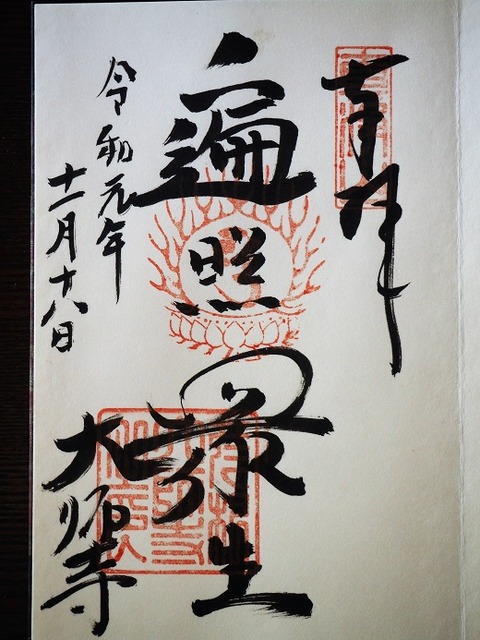 奉拝
遍照衆生
令和元年
十一月十八日
大師寺